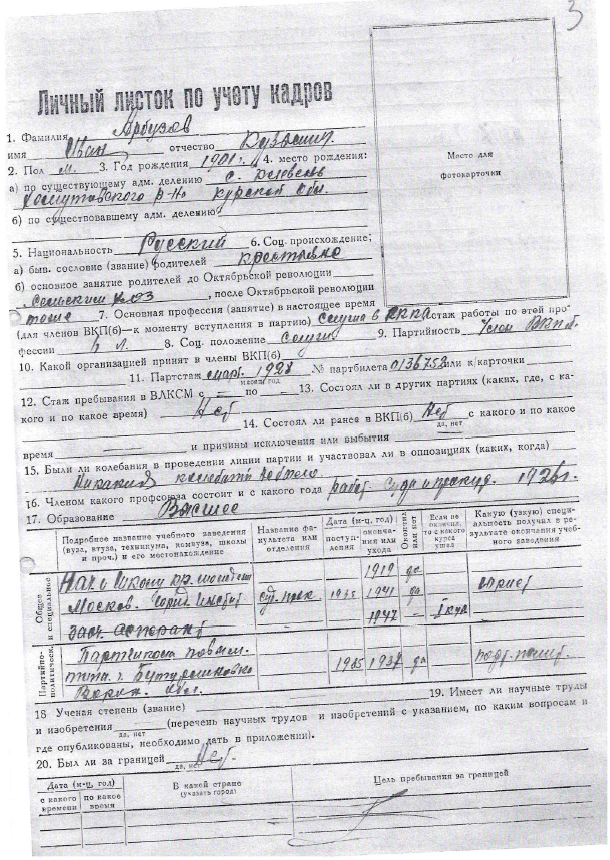 3
Личный листок по учету кадров
1. Фамилия Арбузов
имя Иван отчество Кузьмич
2. Пол м. 3. Год рождения 1901 г. 4. место рождения:
а) по существующему адм. делению с.
р-на Курской обл.
б) по существовавшему адм. делению
5. Национальность Русский 6. Соц. происхождение;
а) быв. сословие (звание) родителей крестьяне
б) основное занятие родителей до Октябрьской революции
сельским х-оз, после Октябрьской революции
тоже 7. Основная профессия (занятие) в настоящее время
(для членов ВКП(б)—к моменту вступления в партию) служба в РККА стаж работы по этой про-
фессии л. 8. Соц. положение 9. Партийность Член ВКПб.
10. Какой организацией принят в члены ВКП(б)
11. Партстаж март. 1928 № партбилета 0136752 или к/карточки
месяц/год
12. Стаж пребывания в ВЛКСМ с — по — 13. Состоял ли в других партиях (каких, где, с ка-
кого и по какое время) Нет
14. Состоял ли ранее в ВКП(б) Нет с какого и по какое
да, нет
время и причины исключения или выбытия
15. Были ли колебания в проведении линии партии и участвовал ли в оппозициях (каких, когда)
Никаких колебаний не было
16. Членом какого профсоюза состоит и с какого года работ. суда и прокур. 1926 г.
17. Образование Высшее
Подробное название учебного заведения (вуза, втуза, техникума, комвуза, школы и проч.) и его местонахождение
Название факультета или отделения
Дата (м-ц, год)
поступления
окончания или ухода
Окончил или нет
Если не окончил, то с какого курса ушел
Какую (узкую) специальность получил в результате окончания учебного заведения
Общее и специальное
1919 да
Москов. юрид. инстит суд. прок 1935 1941 да юрист
Заоч. аспирант 1947 — I кур
Партийно-политическ.
Партийная
г. Бутурлиновка 1935 1937 да
Ворон. обл.
18 Ученая степень (звание) 19. Имеет ли научные труды
и изобретения (перечень научных трудов и изобретений с указанием, по каким вопросам и
да, нет
где опубликованы, необходимо дать в приложении).
20. Был ли за границей Нет
да, нет
Дата (м-ц, год)
с какого времени
по какое время
В какой стране
(указать город)
Цель пребывания за границей
Место для
фотокарточки